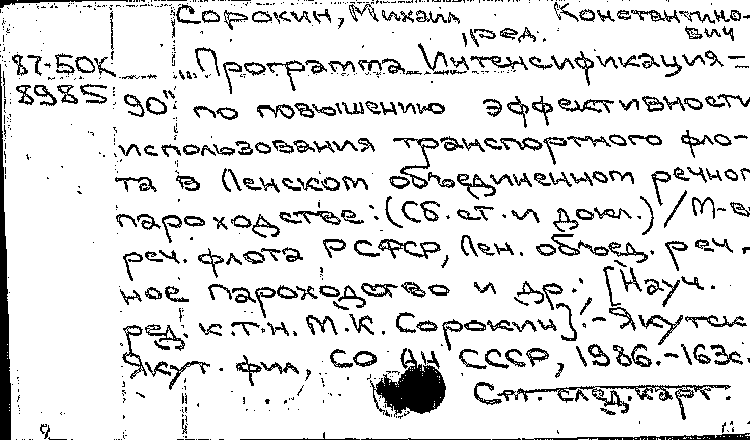 Сорокин, Михаил Константино-
вич
, ред.
87-БОК
8985
"Программа Интенсификация =
90" по повышению эффективности
использования транспортного фло-
та в Ленском объединенном речном
пароходстве: (Сб. ст. и докл.) / М-во
реч. флота РСФСР, Лен. объед. реч-
ное пароходство и др.; [Науч.
ред. к.т.н. М.К. Сорокин]. - Якутск
Якут. фил. СО АН СССР, 1986. - 163с.
См. след. карт.